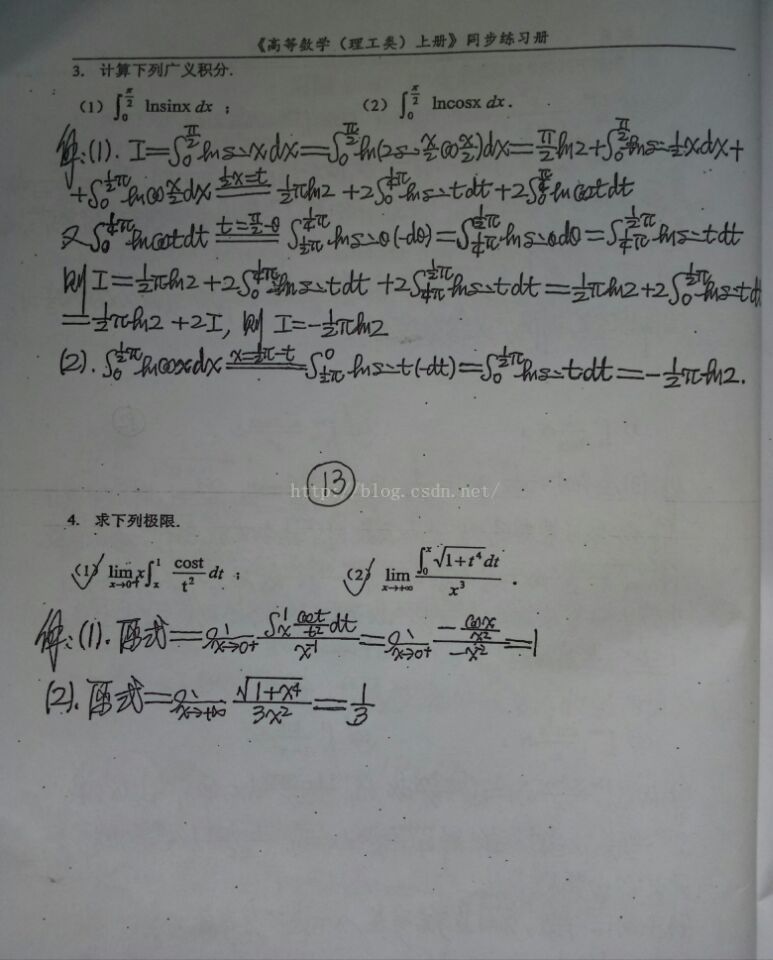 《高等数学（理工类）上册》同步练习册
3. 计算下列广义积分.
(1) ∫₀^{π/2} lnsinx dx ; (2) ∫₀^{π/2} lncosx dx .
解:(1). I=∫₀^{π/2} ln sin x dx=∫₀^{π/2} ln(2sin x/2 cos x/2)dx=π/2 ln2+∫₀^{π/2} ln sin ½x dx+
+∫₀^{½π} ln cos x/2 dx ½x=t ½πln2 +2∫₀^{¼π} ln sin t dt+2∫₀^{π/4} ln cos t dt
又∫₀^{¼π} ln cos t dt t=π/2-θ ∫_{½π}^{¼π} ln sin θ(-dθ)=∫_{¼π}^{½π} ln sin θ dθ=∫_{¼π}^{½π} ln sin t dt
则 I=½πln2+2∫₀^{¼π} ln sin t dt +2∫_{¼π}^{½π} ln sin t dt=½πln2+2∫₀^{½π} ln sin t dt
=½πln2 +2I, 则 I=-½πln2
(2). ∫₀^{½π} ln cos x dx x=½π-t ∫_{½π}^0 ln sin t(-dt)=∫₀^{½π} ln sin t dt=-½πln2.
13
http://blog.csdn.net/
4. 求下列极限.
(1) lim_{x→0+} x∫_x^1 cost/t² dt ; (2) lim_{x→+∞} ∫₀^x √(1+t⁴)dt / x³ .
解:(1). 原式=lim_{x→0+} ∫_x^1 cost/t² dt / x⁻¹ =lim_{x→0+} (-cosx/x²)/(-x⁻²) =1
(2). 原式=lim_{x→+∞} √(1+x⁴)/3x² =1/3